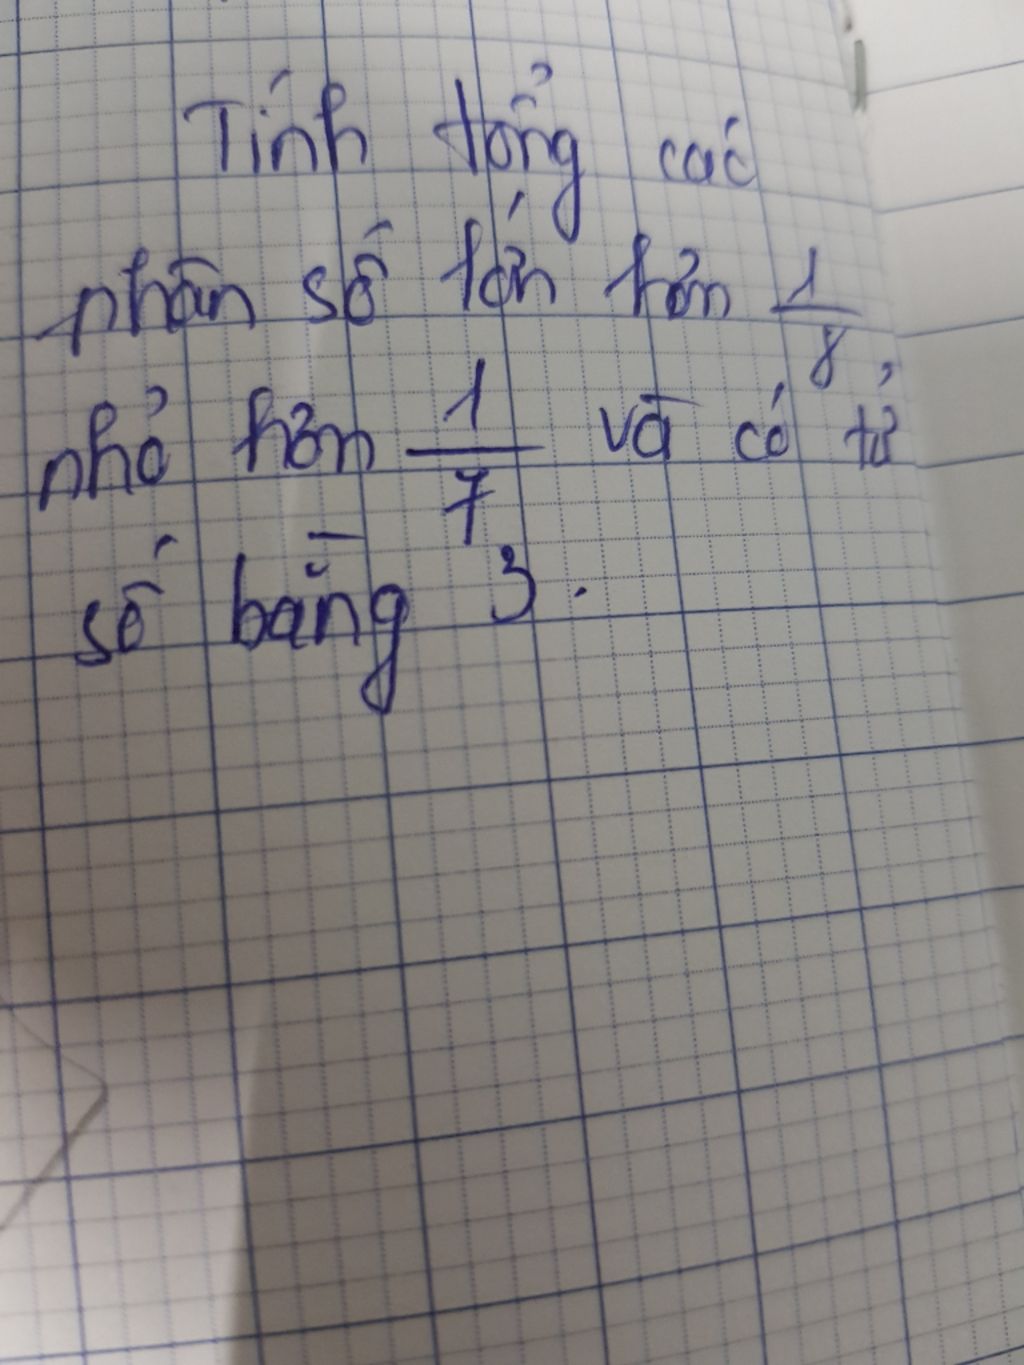 Tính tổng các
phân số lớn hơn 1/8,
nhỏ hơn 1/7 và có tử
số bằng 3.